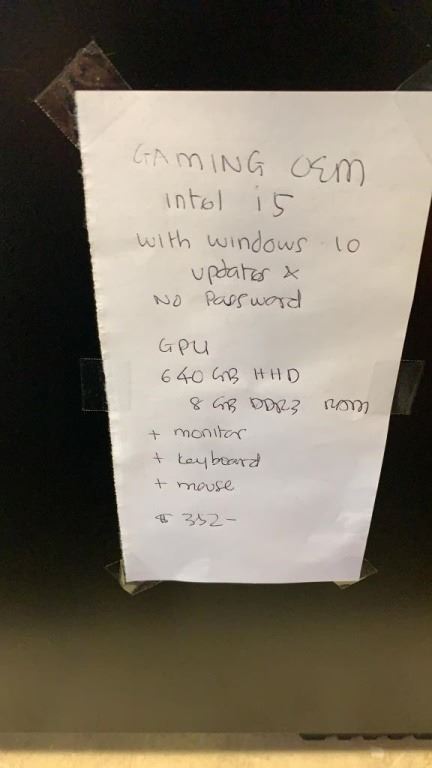 GAMING OEM
intel i5
with windows 10
updates &
NO Password
GPU
640 GB HHD
8 GB DDR3 RAM
+ monitor
+ keyboard
+ mouse
$ 352-